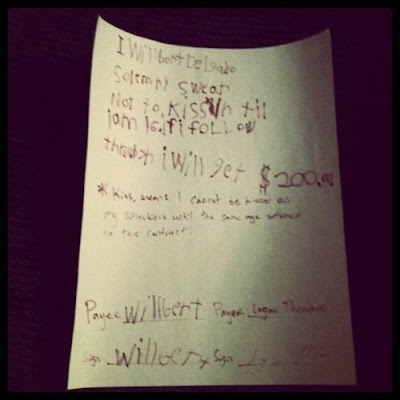 I Willbert Delgado
Solemnl swear
Not to, Kiss
iam 16. if i FOLLOW
through i will get $200.00
* Kiss, means I cannot be kissed on
my smackers until the same age
in this contract.
Payee Willbert Payer Logan
Sign Willbert Sign